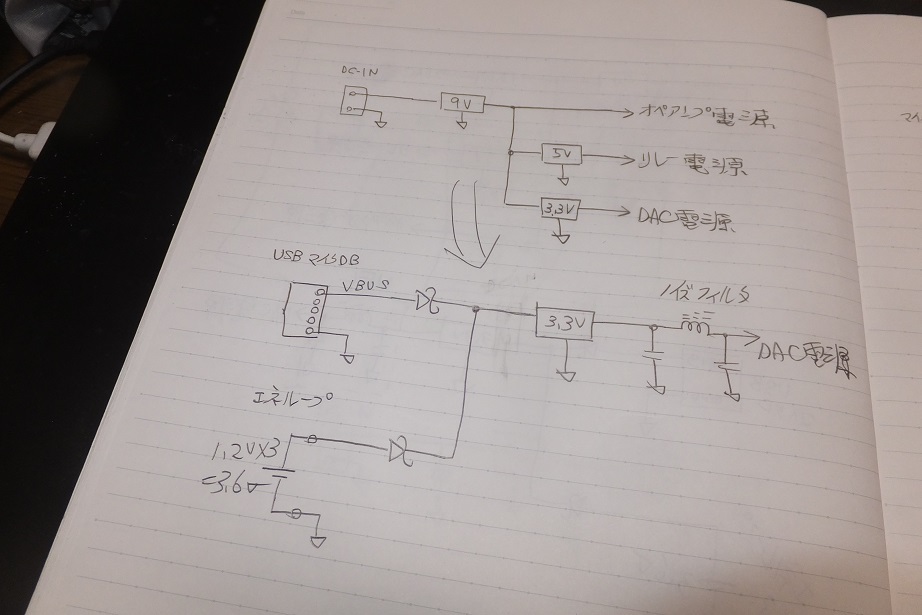 DC-IN
9V
オペアンプ電源
5V
リレー電源
3.3V
DAC電源
USBマイクロB
VBUS
3.3V
ノイズフィルタ
DAC電源
エネループ
1.2V×3
=3.6V
マイ